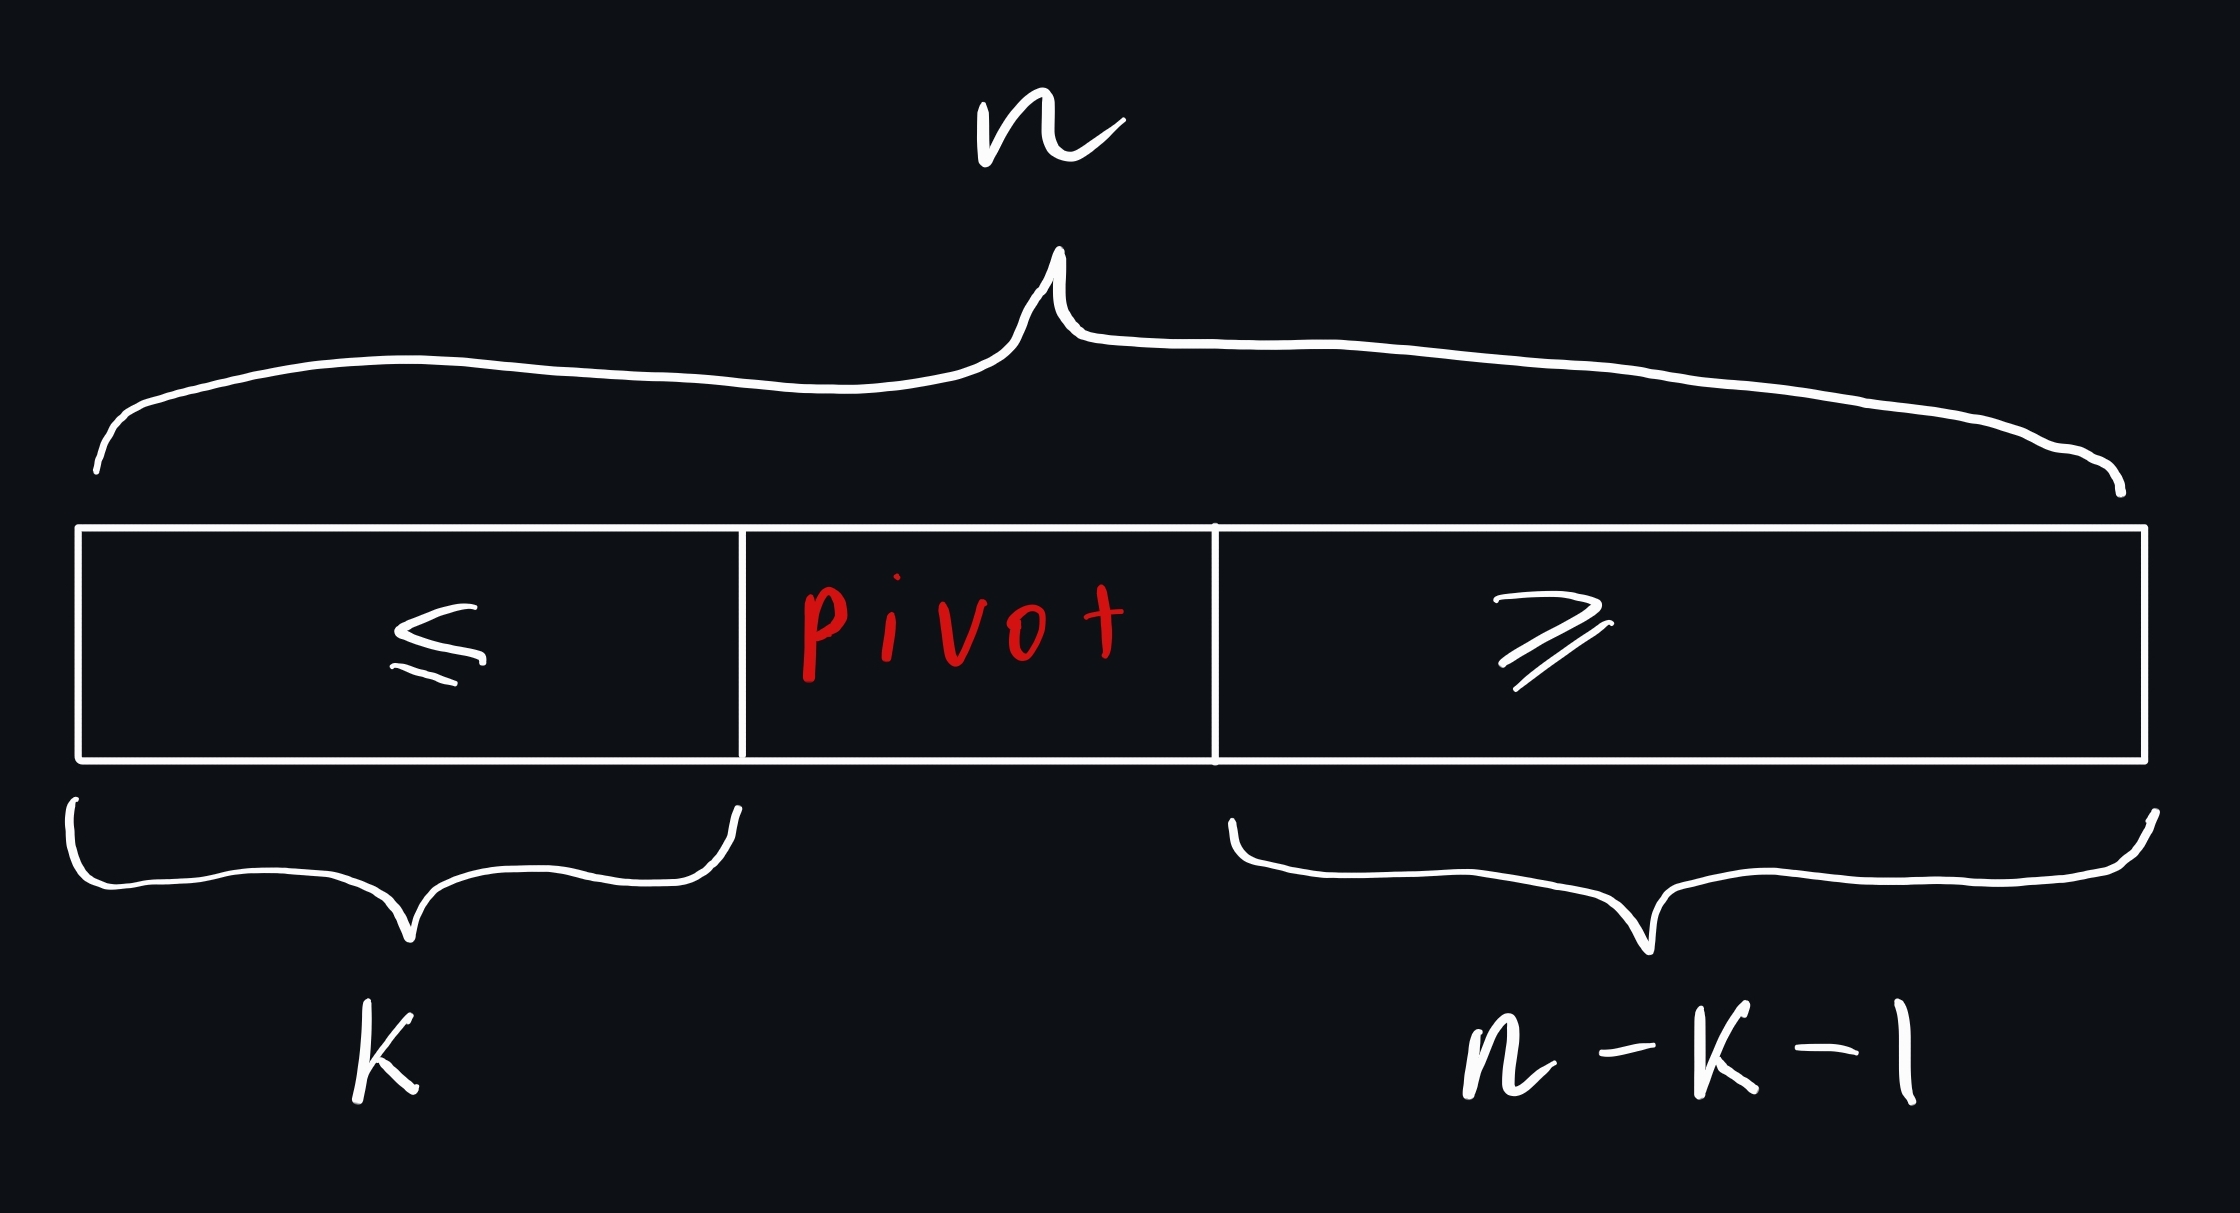 n
≤ pivot ≥
K n-K-1